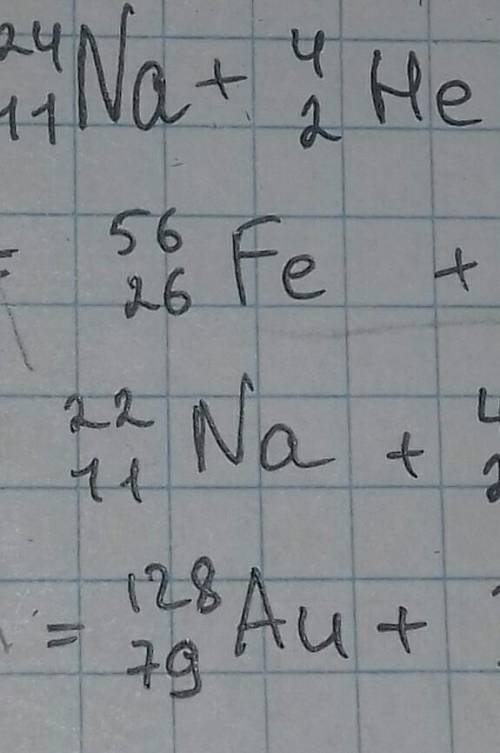 ²⁴₁₁Na + ⁴₂He
= ⁵⁶₂₆Fe +
²²₁₁Na +
= ¹²⁸₇₉Au +